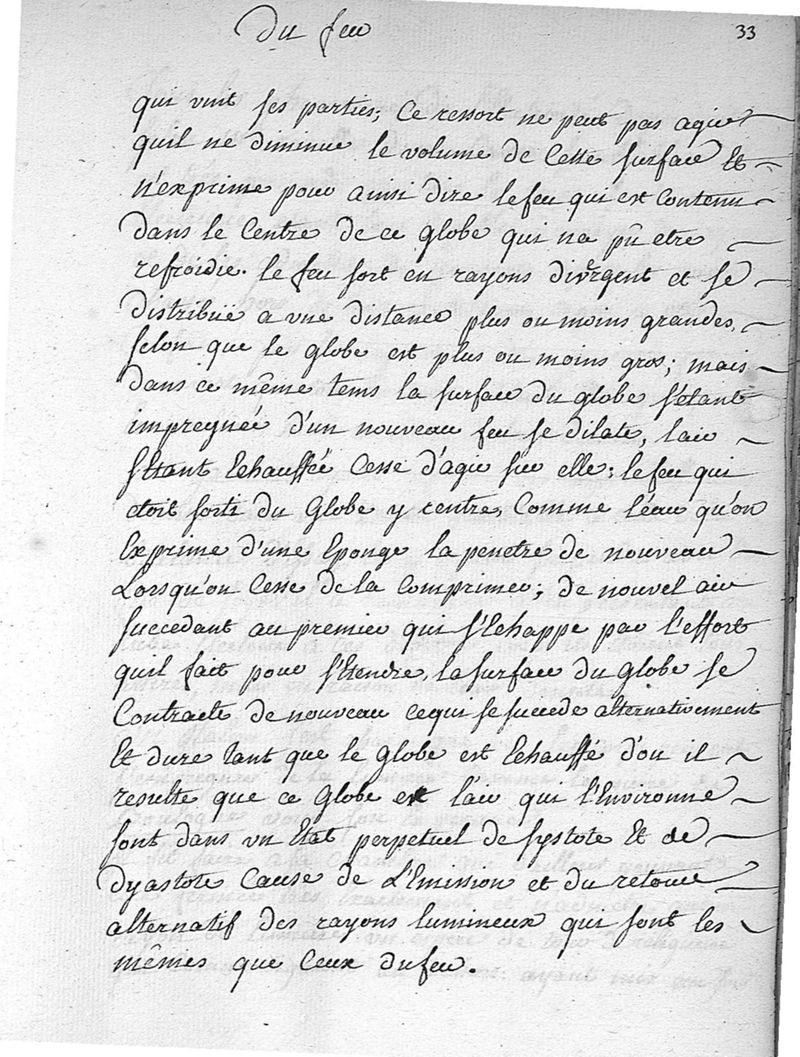 Du feu
33
qui unit ses parties; Ce ressort ne peut pas agir
quil ne diminue le volume de Cette surface Et
n'exprime pour ainsi dire le feu qui est Contenu
dans le Centre de ce globe qui na pû etre
refroidie. le feu sort en rayons divergent et se
distribüe a une distance plus ou moins grandes,
selon que le globe est plus ou moins gros; mais
dans ce même tems la surface du globe s'étant
impregnée d'un nouveau feu se dilate, l'air
s'Etant Echauffé Cesse d'agir sur elle; le feu qui
etoit sorti du Globe y rentre, Comme l'éau qu'on
Exprime d'une Eponge la penetre de nouveau
Lorsqu'on Cesse de la Comprimer; de nouvel air
succedant au premier qui s'Echappe par l'effort
quil fait pour s'Etendre, la surface du globe se
Contracte de nouveau cequi se succede alternativement
Et dure tant que le globe est Echauffé d'ou il
resulte que ce Globe et l'air qui l'Environne
sont dans un Etat perpetuel de systote Et de
dyastote Cause de L'Emission et du retour
alternatif des rayons lumineux qui sont les
mêmes que Ceux du feu.